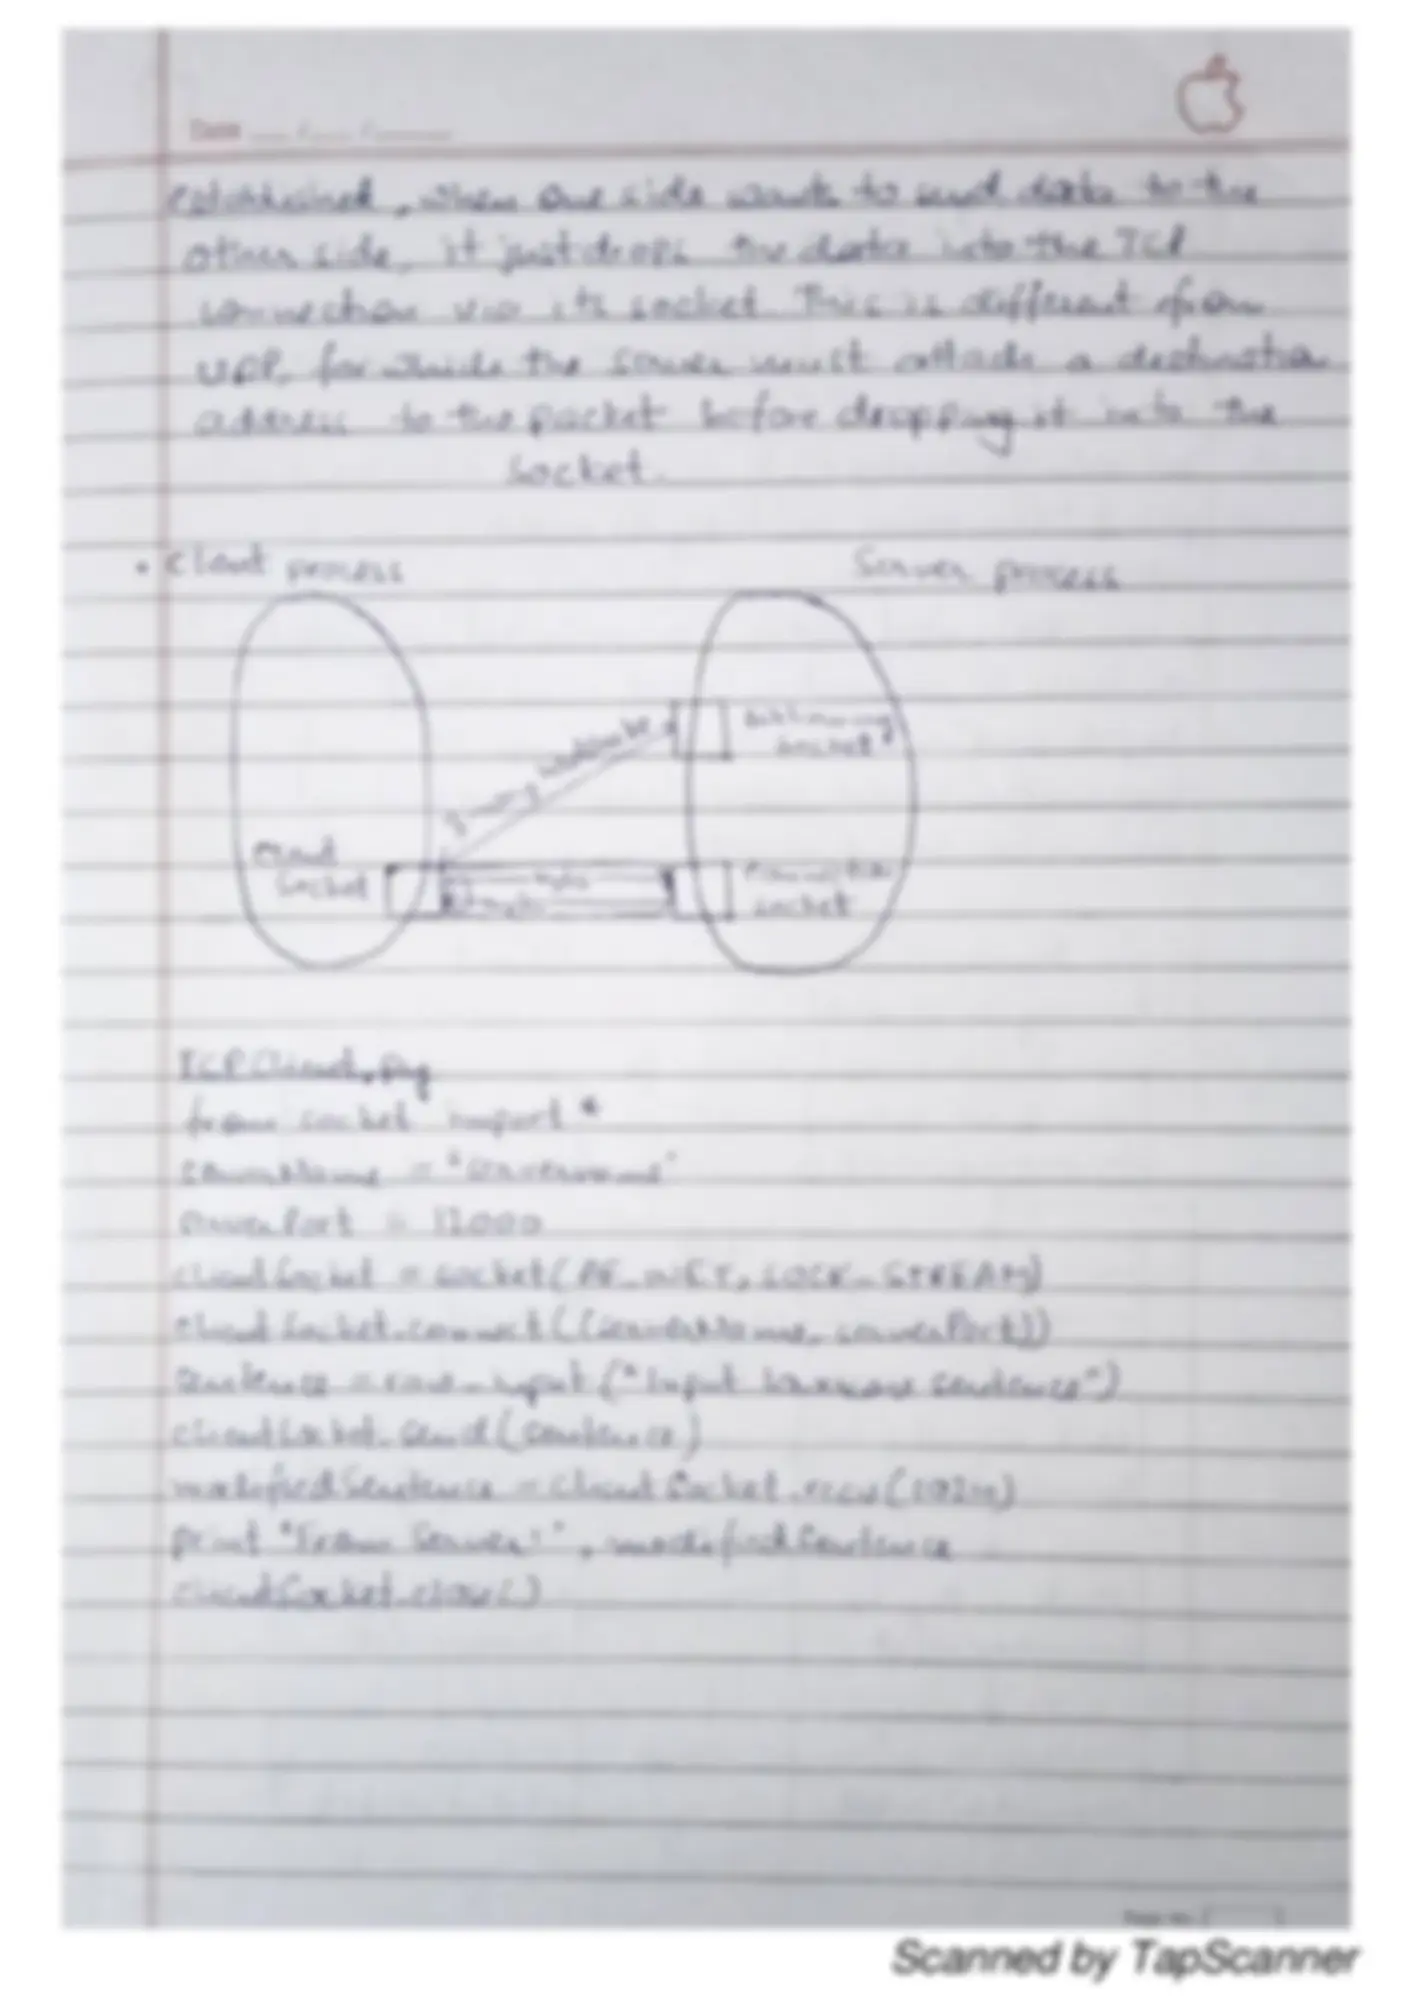 Date
established, when one side wants to send data to the
other side, it just drops the data into the TCP
connection via its socket. This is different from
UDP, for which the server must attach a destination
address to the packet before dropping it into the
socket.
• Client process Server process
Three-way handshake
welcoming
socket
client
socket
bytes
bytes
connection
socket
TCPClient.py
from socket import *
serverName = "servername"
serverPort = 12000
clientSocket = socket(AF_INET, SOCK_STREAM)
clientSocket.connect((serverName, serverPort))
sentence = raw_input("Input lowercase sentence")
clientSocket.send(sentence)
modifiedSentence = clientSocket.recv(1024)
print "From Server:", modifiedSentence
clientSocket.close()
Page No.
Scanned by TapScanner